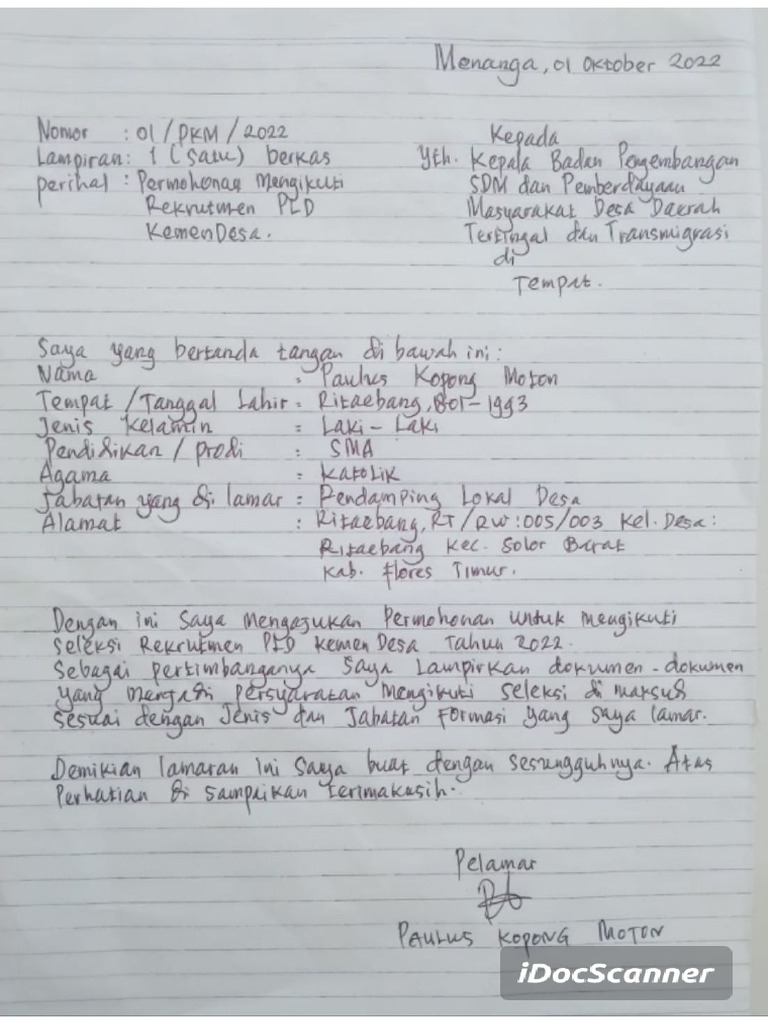 Menanga, 01 Oktober 2022
Nomor : 01/PKM/2022
Lampiran : 1 (satu) berkas
perihal : Permohonan Mengikuti
Rekrutmen PLD
KemenDesa.
Kepada
Yth. Kepala Badan Pengembangan
SDM dan Pemberdayaan
Masyarakat Desa Daerah
Tertingal dan Transmigrasi
di
Tempat.
Saya yang bertanda tangan di bawah ini :
Nama : Paulus Kopong Moton
Tempat /Tanggal Lahir : Ritaebang, 1993
Jenis Kelamin : Laki - Laki
Pendidikan / prodi : SMA
Agama : Katolik
Jabatan yang di lamar : Pendamping Lokal Desa
Alamat : Ritaebang, RT/RW : 005/003 Kel. Desa :
Ritaebang Kec. Solor Barat
Kab. Flores Timur.
Dengan ini Saya Mengajukan Permohonan untuk mengikuti
Seleksi Rekrutmen PLD KemenDesa Tahun 2022.
Sebagai pertimbanganya Saya Lampirkan dokumen - dokumen
yang menjadi persyaratan mengikuti seleksi di maksud
Sesuai dengan Jenis dan Jabatan Formasi yang Saya lamar.
Demikian lamaran ini Saya buat dengan sesungguhnya. Atas
Perhatian di sampaikan terimakasih.
Pelamar
PAULUS KOPONG MOTON
iDocScanner